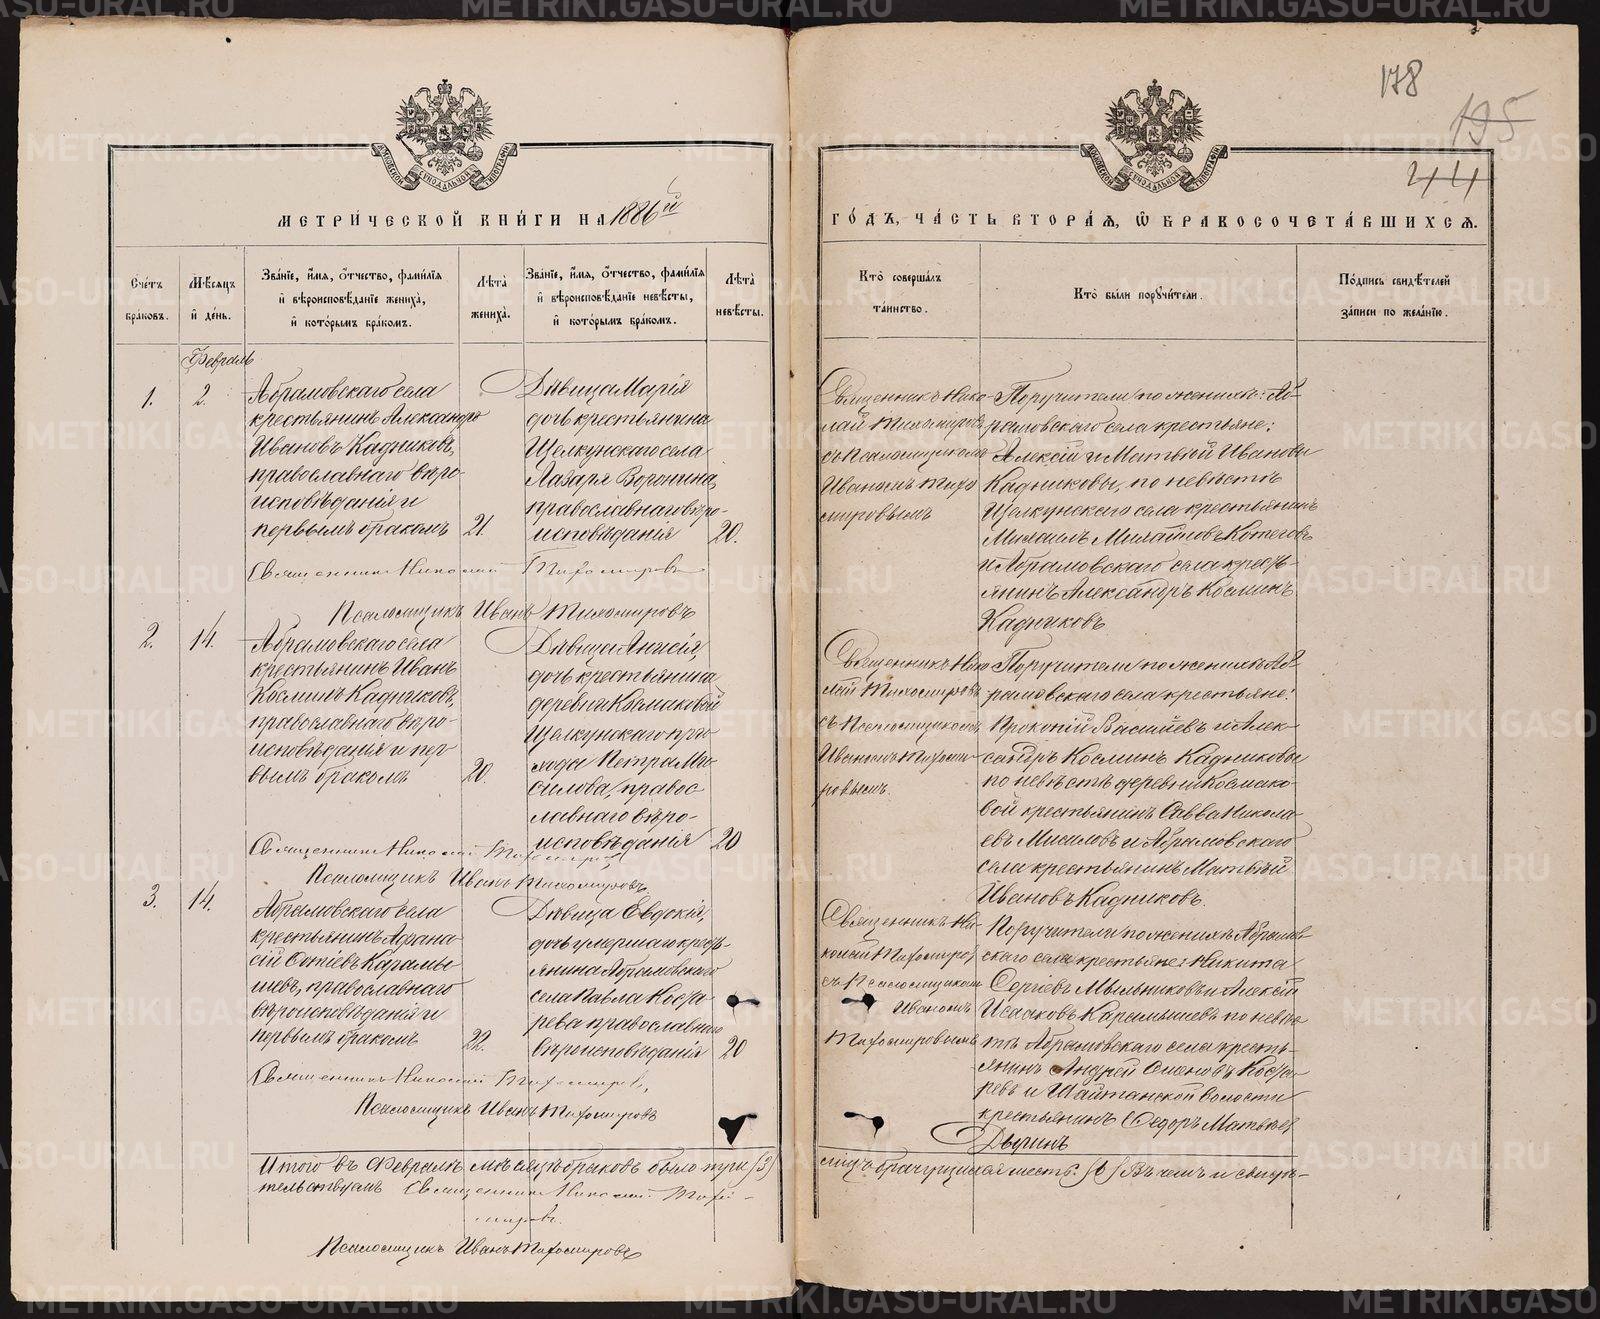 178
195
44
МЕТРИ́ЧЕСКОЙ КНИ́ГИ НА 1886й
ГО́ДЪ, ЧА́СТЬ ВТОРА́Ѧ, Ѽ БРАКОСОЧЕТА́ВШИХСѦ.
Сче́тъ бра́ковъ.
Мѣ́сѧцъ и҆ де́нь.
Зва́нїе, и҆́мѧ, ѻ҆́тчество, фами́лїѧ
и҆ вѣроисповѣ́данїе жениха̀,
и҆ кото́рымъ бра́комъ.
Лѣ́та жениха̀.
Зва́нїе, и҆́мѧ, ѻ҆́тчество, фами́лїѧ
и҆ вѣроисповѣ́данїе невѣ́сты,
и҆ кото́рымъ бра́комъ.
Лѣ́та невѣ́сты.
Кто̀ соверша́лъ
та́инство.
Кто̀ бы́ли порꙋчи́тели.
По́дпись свидѣ́телей
за́писи по жела́нїю.
Февраль
1.
2.
Абрамовскаго села
крестьянинъ Александръ
Ивановъ Кадниковъ,
православнаго вѣро-
исповѣданія и
первымъ бракомъ
21.
Дѣвица Марія
дочь крестьянина
Щелкунскаго села
Лазаря Воронина,
православнаго вѣро-
исповѣданія
20.
Священникъ Нико-
лай Тихомировъ
съ Псаломщикомъ
Иваномъ Тихо
мировымъ
Поручители по женихѣ: Аб-
рамовскаго села крестьяне:
Алексій и Матѳій Ивановы
Кадниковы, по невѣстѣ
Щелкунскаго села крестьянинъ
Михаилъ
и Абрамовскаго села кресть-
янинъ Александръ Косминъ
Кадниковъ
Священникъ Николай Тихомировъ
Псаломщикъ Иванъ Тихомировъ
2.
14.
Абрамовскаго села
крестьянинъ Иванъ
Косминъ Кадниковъ,
православнаго вѣро-
исповѣданія и пер
вымъ бракомъ
20.
Дѣвица Анисія,
дочь крестьянина
деревни Космаковой
Щелкунскаго при-
хода Петра Ми
силова, правос
лавнаго вѣро-
исповѣданія
20
Священникъ Нико
лай Тихомировъ
съ Псаломщикомъ
Иваномъ Тихоми-
ровымъ.
Поручители по женихѣ Аб-
рамовскаго села крестьяне:
Прокопій Васильевъ и Алек
сандръ Косминъ Кадниковы
по невѣстѣ деревни Космако-
вой крестьянинъ Савва Никола-
евъ Мисиловъ и Абрамовскаго
села крестьянинъ Матѳій
Ивановъ Кадниковъ.
Священникъ Николай Тихомировъ
Псаломщикъ Иванъ Тихомировъ.
3.
14.
Абрамовскаго села
крестьянинъ Афана
сій Карамы
шевъ, православнаго
вѣроисповѣданія и
первымъ бракомъ
22.
Дѣвица Евдокія,
дочь умершаго кресть-
янина Абрамовскаго
села Павла Кос
рева православнаго
вѣроисповѣданія
20
Священникъ Ни-
колай Тихомировъ
съ Псаломщикомъ
Иваномъ
Тихомировымъ
Поручители по женихѣ Абрамов-
скаго села крестьяне: Никита
Сергіевъ Мыльниковъ и Алексій
Исааковъ Карамышевъ по невѣс
тѣ Абрамовскаго села кресть-
янинъ Андрей Семеновъ
ревъ и Шайтанской волости
крестьянинъ Ѳедоръ Матвѣев
Священникъ Николай Тихомировъ,
Псаломщикъ Иванъ Тихомировъ
Итого въ Февралѣ мѣсяцѣ браковъ было три (3)
лицъ брачущихся шесть: (6) Въ чемъ и свидѣ-
тельствуемъ Священникъ Николай Тихо-
мировъ.
Псаломщикъ Иванъ Тихомировъ